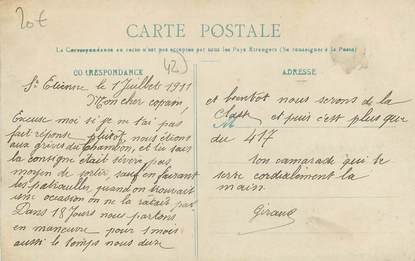 20€
CARTE POSTALE
La Correspondance au recto n'est pas acceptée par tous les Pays Etrangers (Se renseigner à la Poste)
42)
CORRESPONDANCE
ADRESSE
St Etienne le 1 Juillet 1911
Mon cher copain,
Excuse moi si je ne t'ai pas
fait réponse plutot, nous étions
aux grèves du Chambon, et tu sais
la consigne était sévère pas
moyen de sortir sauf en faisant
les patrouilles, quand on trouvait
une occasion on ne la ratait pas
Dans 18 Jours nous partons
en manœuvre pour 1 mois
aussi le temps nous dure
et bientot nous serons de la
Classe et puis c'est plus que
du 417
ton camarade qui te
serre cordialement la
main
Giraud